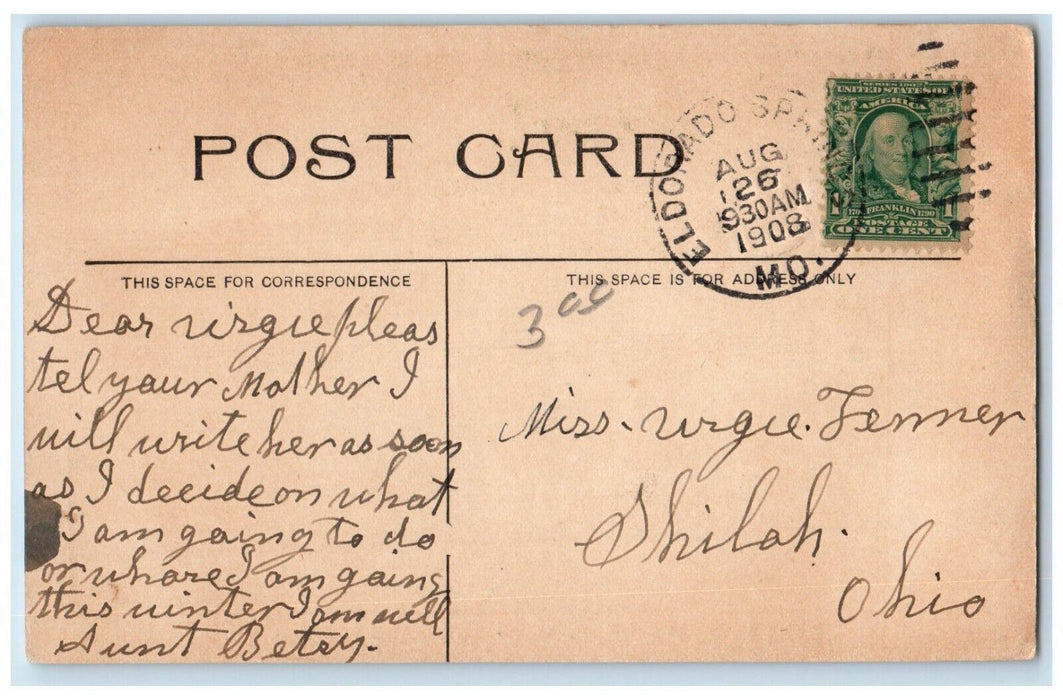 POST CARD
ELDORADO SPRINGS
AUG
26
930AM
1908
MO.
SERIES 1902
UNITED STATES OF
AMERICA
1 1
1706 FRANKLIN 1790
POSTAGE
ONE CENT
THIS SPACE FOR CORRESPONDENCE
Dear virgie pleas
tel your Mother I
will write her as soon
as I decide on what
I am going to do
or whare I am going
this winter I am well
Aunt Betsy.
THIS SPACE IS FOR ADDRESS ONLY
3 00
Miss. virgie. Fenner
Shiloh.
Ohio